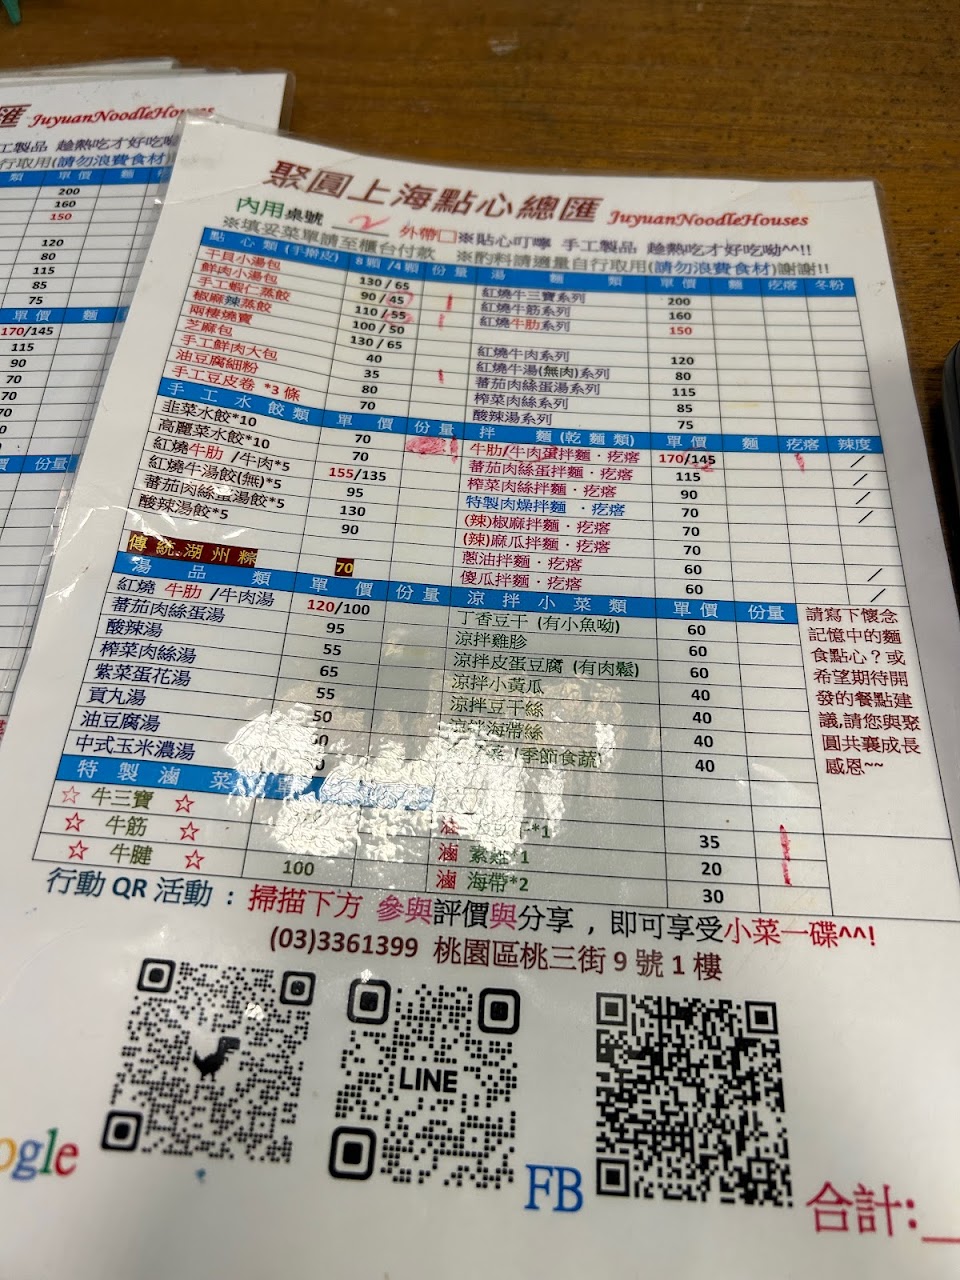 聚圓上海點心總匯 JuyuanNoodleHouses
內用桌號 2 外帶□※貼心叮嚀 手工製品 趁熱吃才好吃呦^^!!
※填妥菜單請至櫃台付款 ※酌料請適量自行取用(請勿浪費食材)謝謝!!
點心類(手擀皮) 8顆/4顆 份量
干貝小湯包 130/65
鮮肉小湯包 90/45
手工蝦仁蒸餃 110/55
椒麻辣蒸餃 100/50
兩樓燒賣 130/65
芝麻包 40
手工鮮肉大包 35
油豆腐細粉 80
手工豆皮卷 *3條 70
湯麵類 單價 麵 疙瘩 冬粉
紅燒牛三寶系列 200
紅燒牛筋系列 160
紅燒牛肋系列 150
紅燒牛肉系列 120
紅燒牛湯(無肉)系列 80
蕃茄肉絲蛋湯系列 115
榨菜肉絲系列 85
酸辣湯系列 75
手工水餃類 單價 份量
韭菜水餃*10 70
高麗菜水餃*10 70
紅燒牛肋/牛肉*5 155/135
紅燒牛湯餃(無)*5 95
蕃茄肉絲蛋湯餃*5 130
酸辣湯餃*5 90
傳統湖州粽 70
拌麵(乾麵類) 單價 麵 疙瘩 辣度
牛肋/牛肉蛋拌麵·疙瘩 170/145
蕃茄肉絲蛋拌麵·疙瘩 115
榨菜肉絲拌麵·疙瘩 90
特製肉燥拌麵·疙瘩 70
(辣)椒麻拌麵·疙瘩 70
(辣)麻瓜拌麵·疙瘩 70
蔥油拌麵·疙瘩 60
傻瓜拌麵·疙瘩 60
湯品類 單價 份量
紅燒 牛肋/牛肉湯 120/100
蕃茄肉絲蛋湯 95
酸辣湯 55
榨菜肉絲湯 65
紫菜蛋花湯 55
貢丸湯 50
油豆腐湯
中式玉米濃湯
涼拌小菜類 單價 份量
丁香豆干(有小魚呦) 60
涼拌雞胗 60
涼拌皮蛋豆腐(有肉鬆) 60
涼拌小黃瓜 40
涼拌豆干絲 40
涼拌海帶絲 40
/季節食蔬 40
請寫下懷念
記憶中的麵
食點心?或
希望期待開
發的餐點建
議,請您與聚
圓共襄成長
感恩~~
特製滷菜 單
☆ 牛三寶 ☆
☆ 牛筋 ☆
☆ 牛腱 ☆ 100
滷 *1 35
滷 素雞*1 20
滷 海帶*2 30
行動QR活動:掃描下方 參與評價與分享,即可享受小菜一碟^^!
(03)3361399 桃園區桃三街9號1樓
LINE
ogle
FB
合計:
匯 JuyuanNoodleHouses
工製品 趁熱吃才好吃呦
行取用(請勿浪費食材)
類 單價 麵
200
160
150
120
80
115
85
75
單價 麵
170/145
115
90
70
70
70
60
價 份量